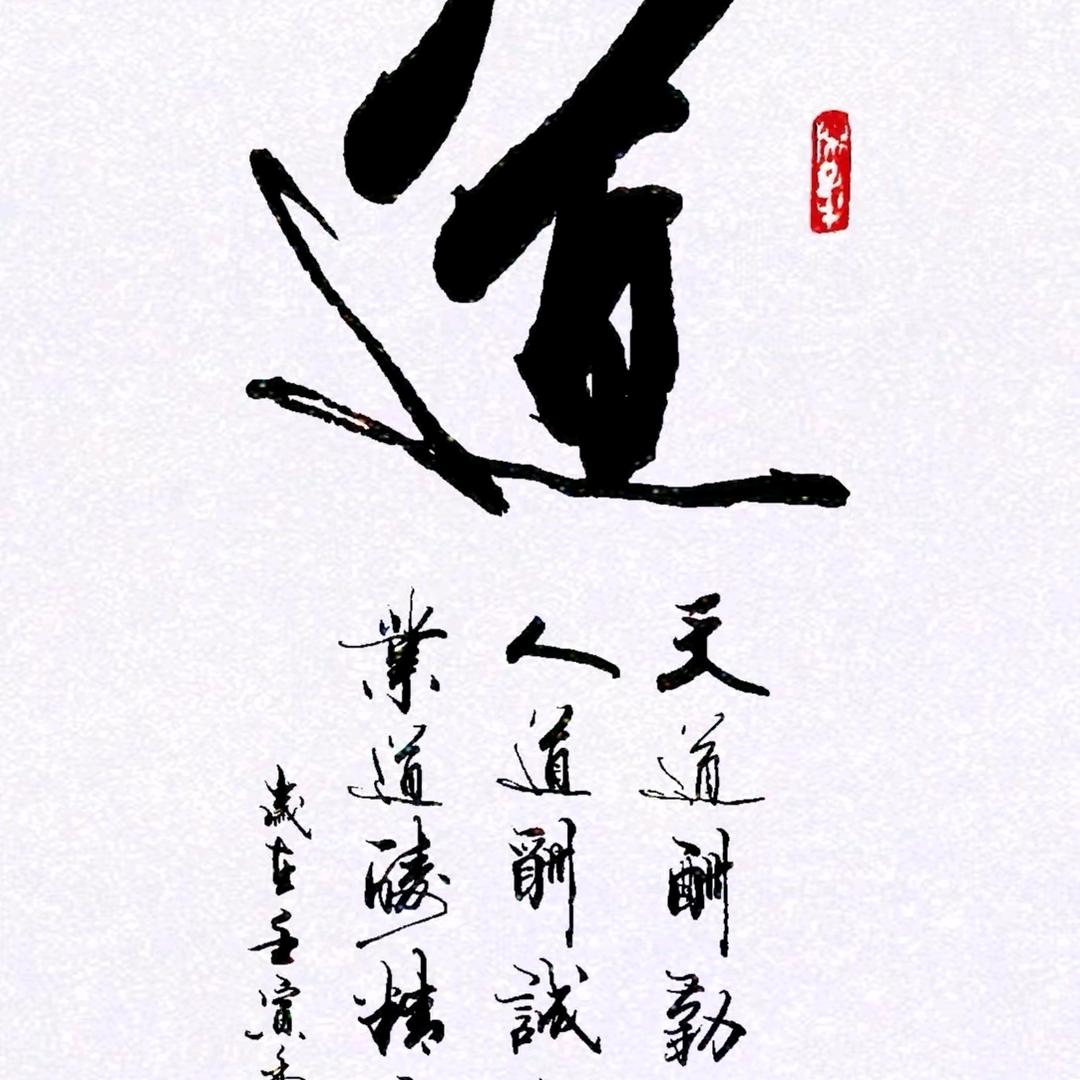 道
天道酬勤
人道酬誠
業道酬精
歲在壬寅